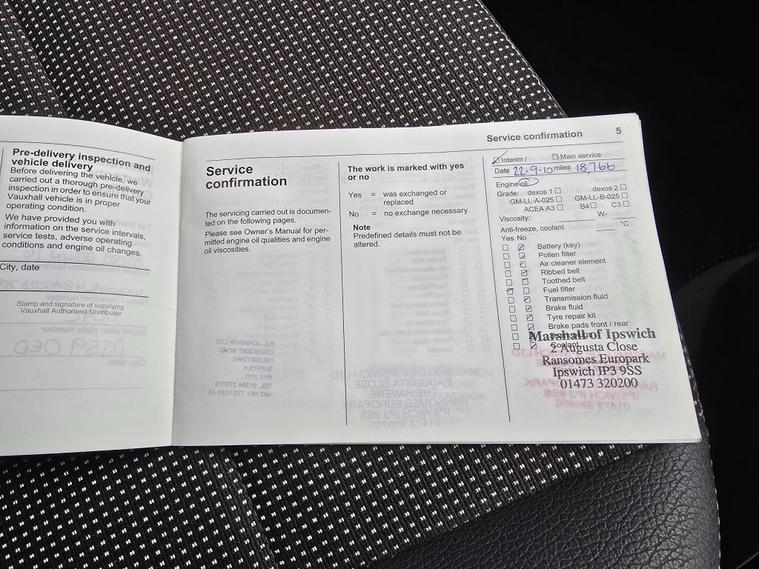 Pre-delivery inspection and
vehicle delivery
Before delivering the vehicle, we
carried out a thorough pre-delivery
inspection in order to ensure that your
Vauxhall vehicle is in proper
operating condition.
We have provided you with
information on the service intervals,
service tests, adverse operating
conditions and engine oil changes.
City, date
Stamp and signature of supplying
Vauxhall Authorised Distributor
Service confirmation 5
Service
confirmation
The servicing carried out is documen-
ted on the following pages.
Please see Owner's Manual for per-
mitted engine oil qualities and engine
oil viscosities.
The work is marked with yes
or no
Yes = was exchanged or
replaced
No = no exchange necessary
Note
Predefined details must not be
altered.
Interim / Main service
Date 22-9-10 miles 18,766
Engine oil
Grade: dexos 1 dexos 2
GM-LL-A-025 GM-LL-B-025
ACEA A3 B4 C3
Viscosity: W-
Anti-freeze, coolant °C
Yes No
Battery (key)
Pollen filter
Air cleaner element
Ribbed belt
Toothed belt
Fuel filter
Transmission fluid
Brake fluid
Tyre repair kit
Brake pads front / rear
Marshall of Ipswich
2 Augusta Close
Ransomes Europark
Ipswich IP3 9SS
01473 320200